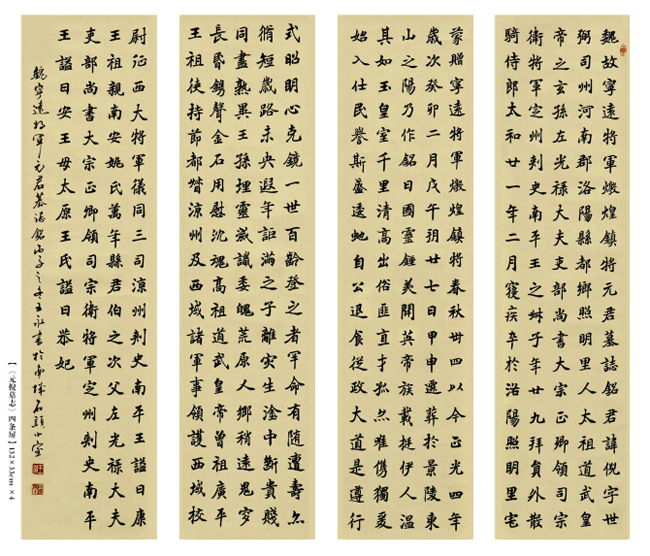 魏故寧遠將軍燉煌鎮將元君墓誌銘君諱倪字世
弼司州河南郡洛陽縣都鄉照明里人太祖道武皇
帝之玄孫左光祿大夫吏部尚書大宗正卿領司宗
衛將軍定州刺史南平王之
子年廿九拜員外散
騎侍郎太和廿一年二月寢疾卒於洛陽照明里宅
蒙贈寧遠將軍燉煌鎮將春秋卌四以今正光四年
歲次癸卯二月戊午朔廿七日甲申遷葬於景陵東
山之陽乃作銘曰國靈鍾美開英帝族載挺伊人溫
其如玉皇室千里清高出俗匪直才孤亦唯儁獨爰
始入仕民譽斯盛逶虵自公退食從政大道是遵行
式昭明心克鏡一世百齡登之者罕命有隨遭壽亦
脩短歲路未央遐年詎滿之子離灾生淦中斷貴賤
同盡熟異王孫埋靈
讖委魄荒原人鄉稍遠鬼穸
長昏鐫聲金石用慰沈魂高祖道武皇帝曾祖廣平
王祖使持節都督涼州及西域諸軍事領護西域校
尉征西大將軍儀同三司涼州刺史南平王謚曰康
王祖親南安姚氏萬年縣君伯之次父左光祿大夫
吏部尚書大宗正卿領司宗衛將軍定州刺史南平
王謚曰安王母太原王氏謚曰恭妃
魏寧遠將軍元君墓誌銘
書於南
石頭小室
【《元倪墓志》四条屏】132×33cm ×4